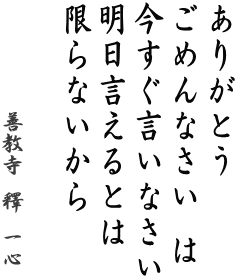 ありがとう
ごめんなさい は
今すぐ言いなさい
明日言えるとは
限らないから
善教寺 釋 一心